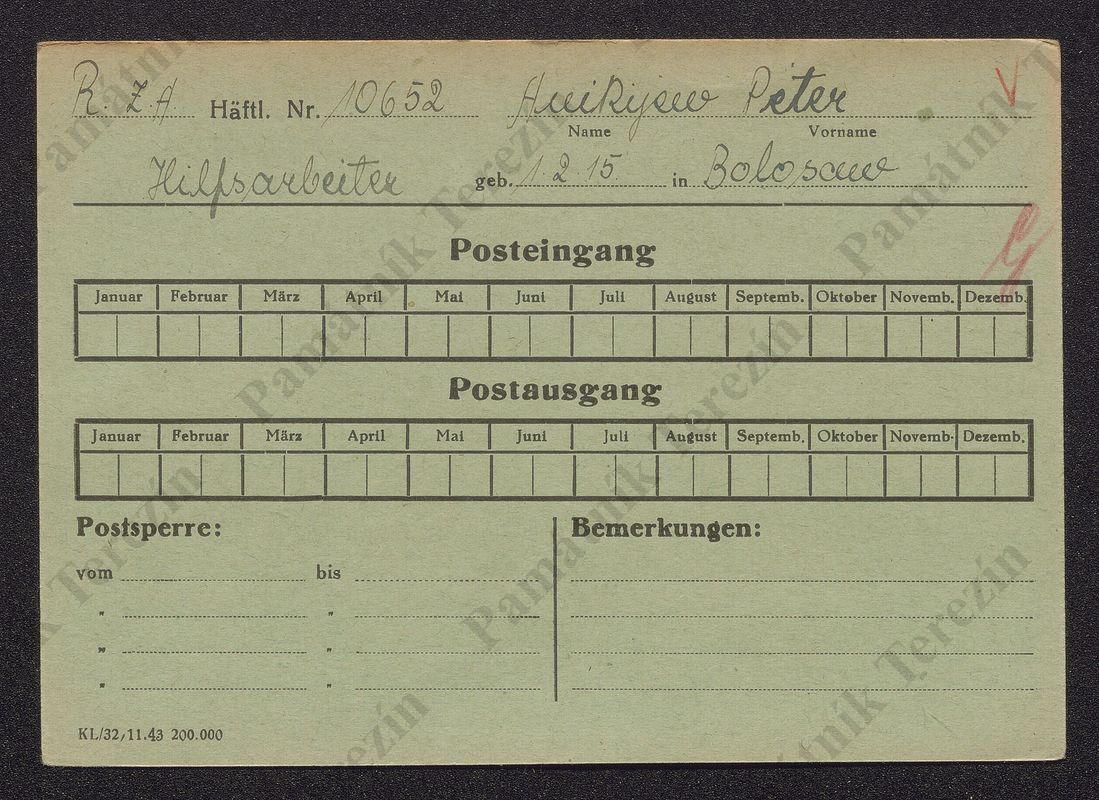 R. Z. A. Häftl. Nr. 10652 Anikijew Peter
Name Vorname
Hilfsarbeiter geb. 1. 2. 15. in Bolosaew
Posteingang
Januar Februar März April Mai Juni Juli August Septemb. Oktober Novemb. Dezemb.
Postausgang
Januar Februar März April Mai Juni Juli August Septemb. Oktober Novemb. Dezemb.
Postsperre: Bemerkungen:
vom bis
" "
" "
" "
KL/32, 11.43 200.000
Památník Terezín